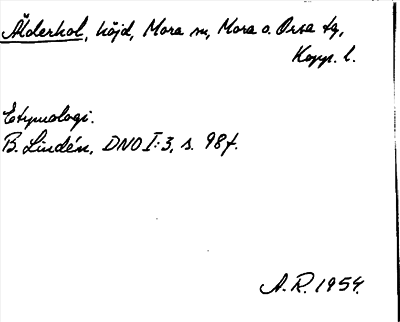 Ålderhol, höjd, Mora sn, Mora o. Orsa tg,
Kopp. l.
Etymologi.
B. Lindén, DNO I:3, s. 98f.
A.R. 1954.